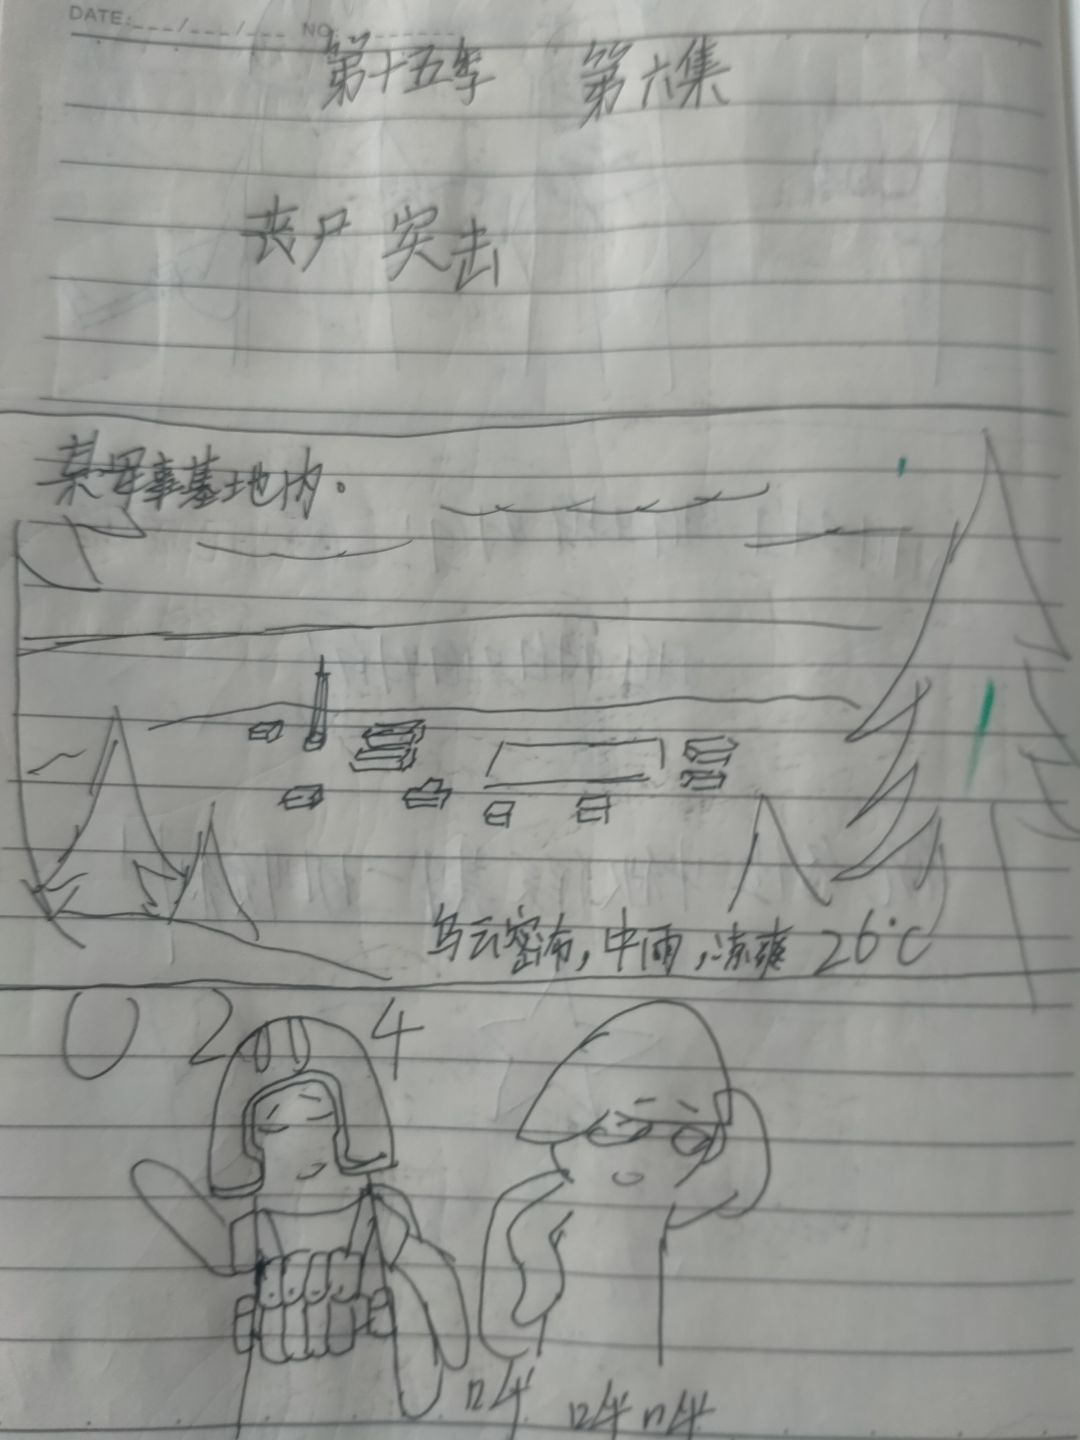 DATE:___/___/___ NO:
第十五季 第六集
丧尸 突击
某军事基地内。
乌云密布,中雨,凉爽 26°C
0 2 4
哞 哞哞